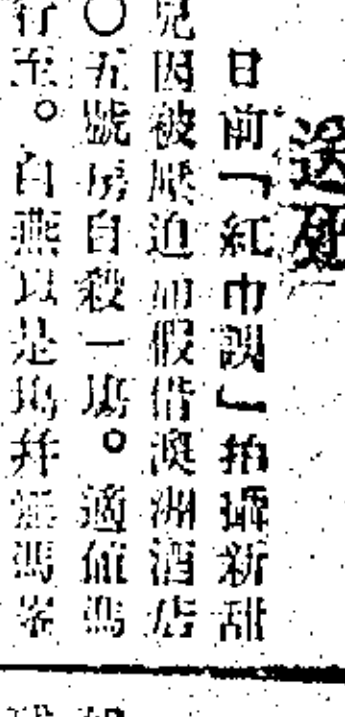 送
日前「紅巾誤」拍攝新甜
兒因被壓迫而假借澳洲酒店
〇五號房自殺一塲。適値馮
行至。白燕以是塲并無馮峯